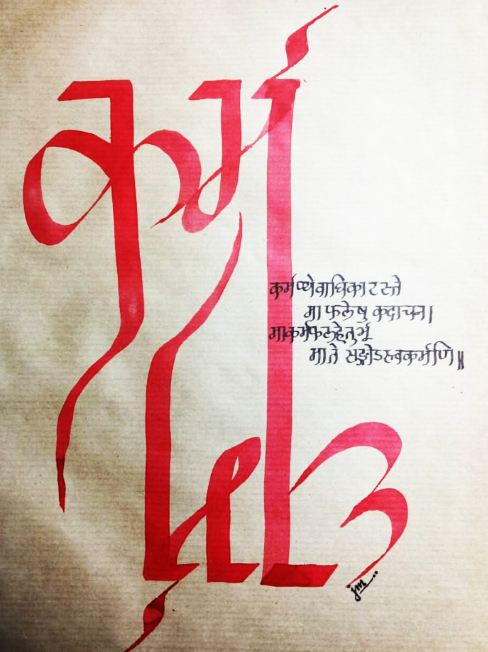 कर्म
कर्मण्येवाधिकारस्ते
मा फलेषु कदाचन।
मा कर्मफलहेतुर्भू
मा ते सङ्गोऽस्त्वकर्मणि॥
jm...